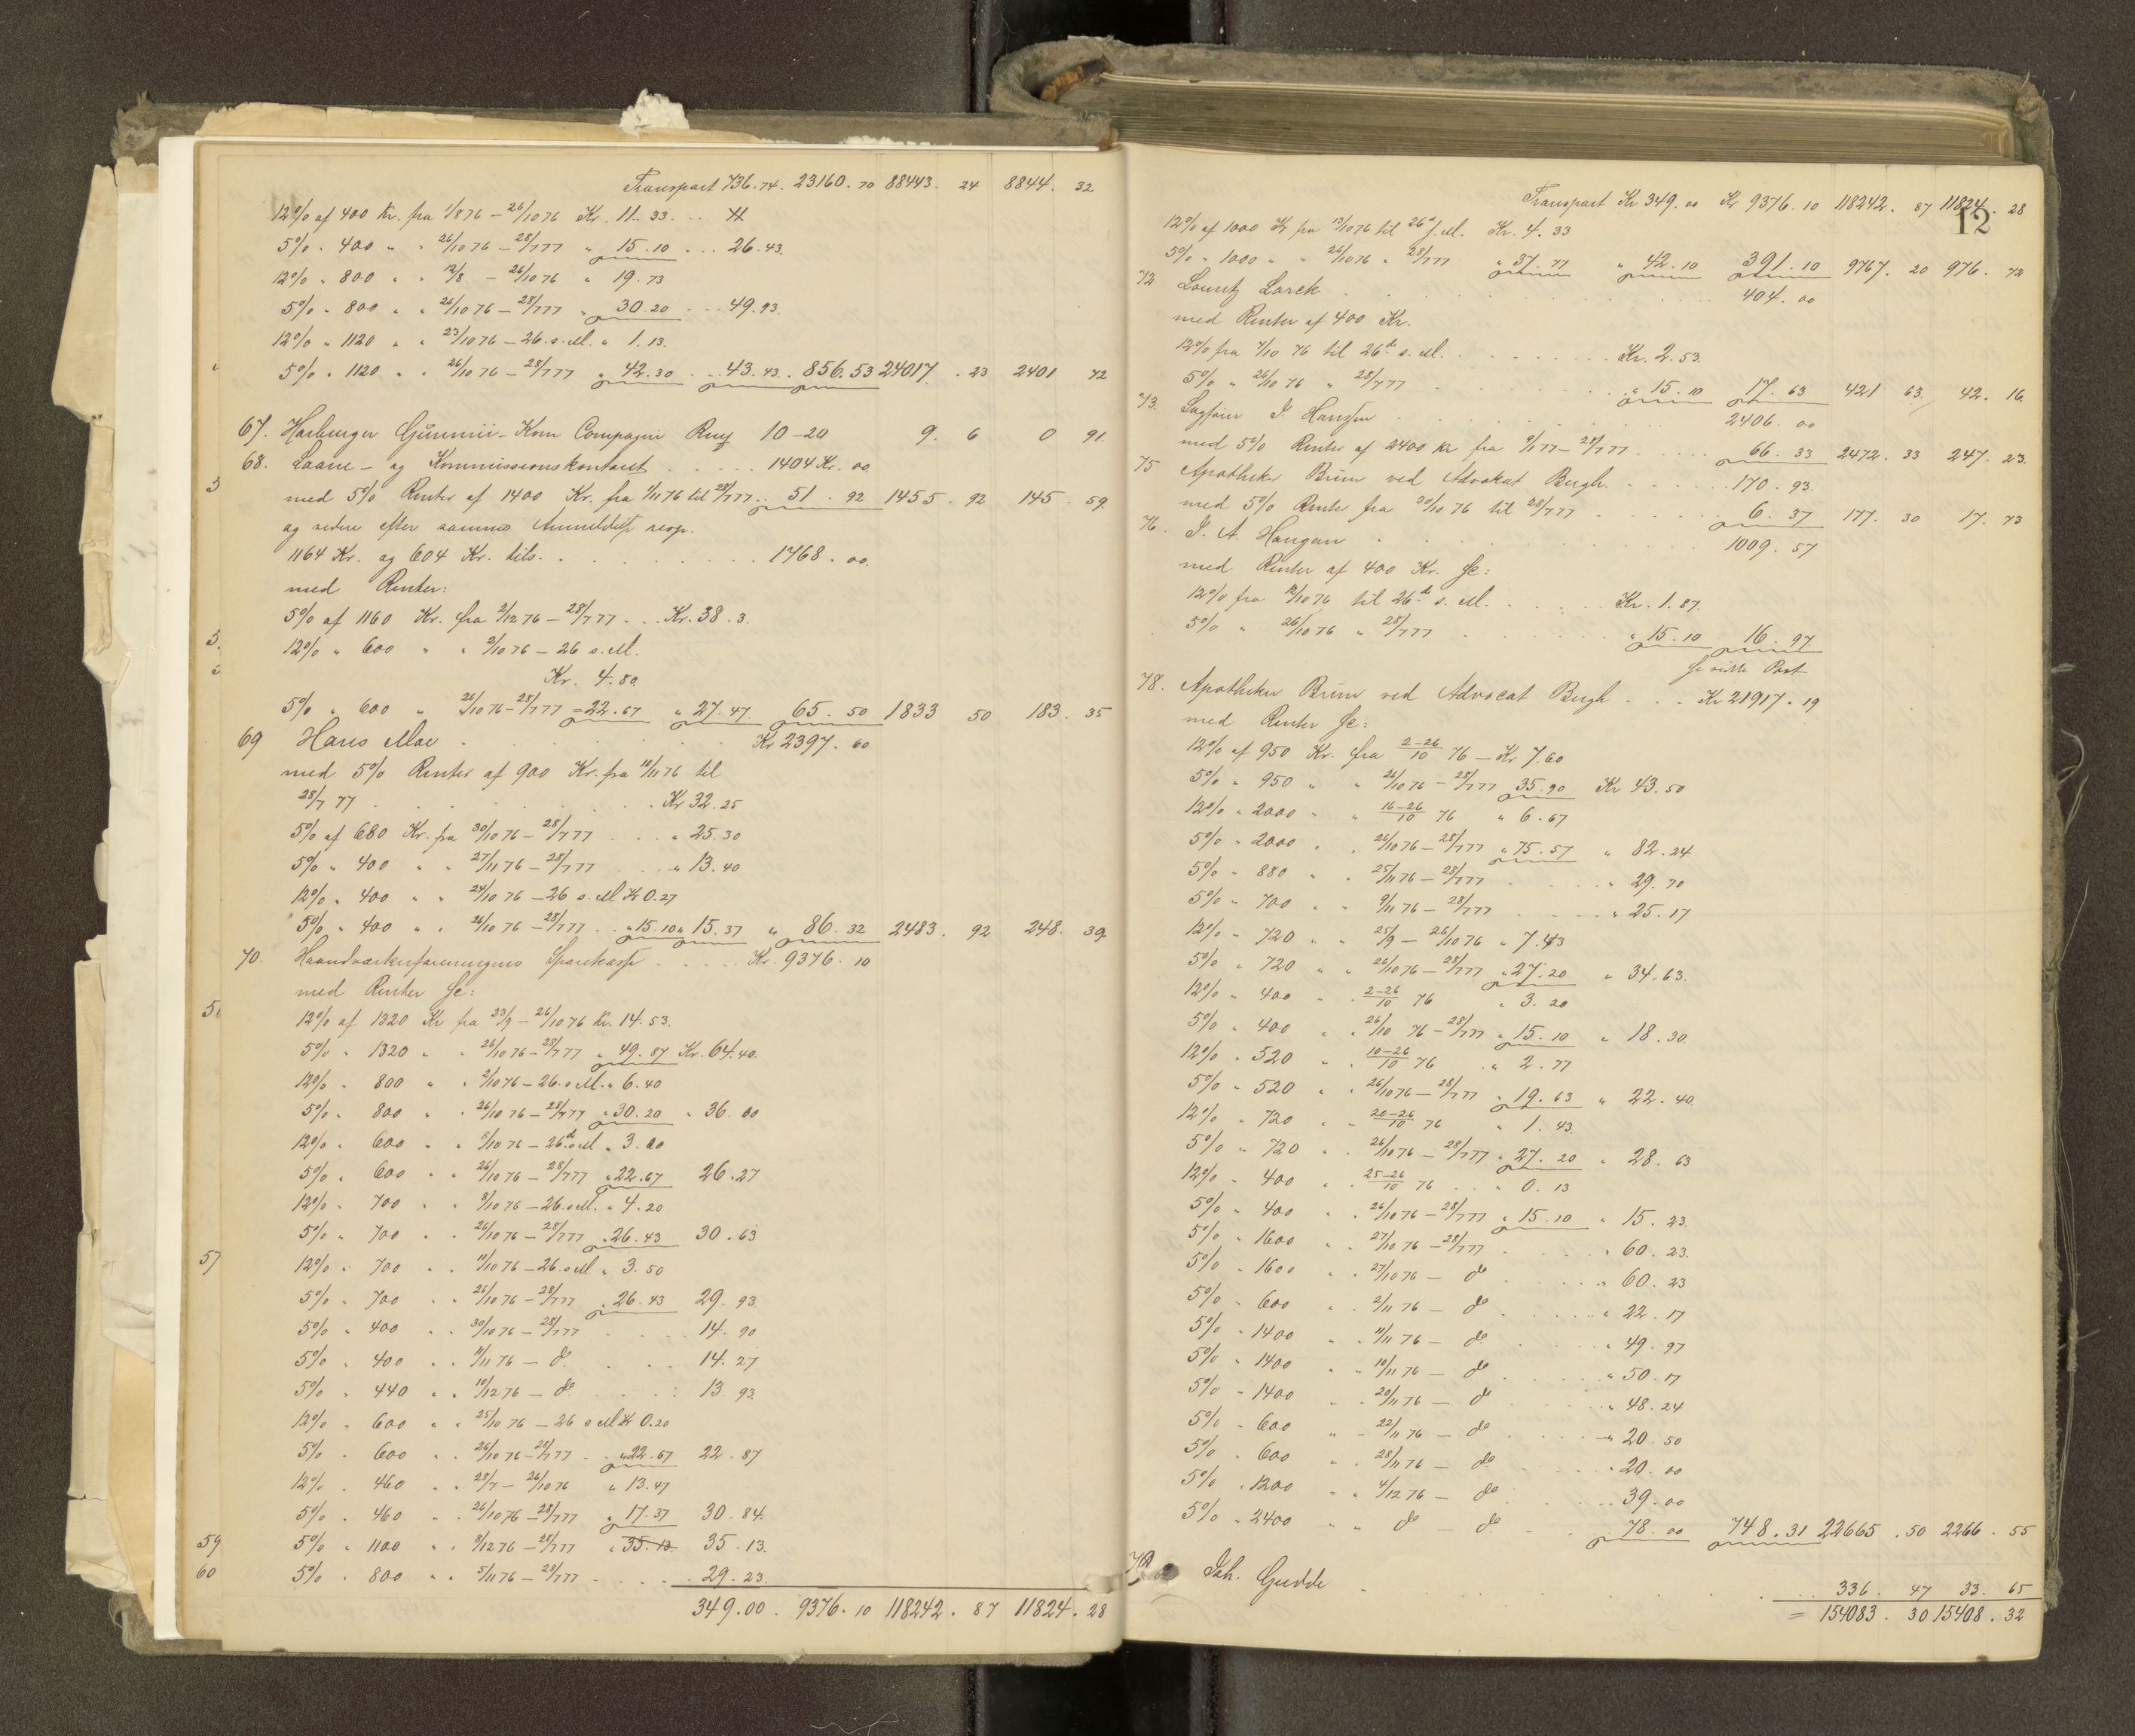 Transport 736.74. 23160.70 88443.24 8844.32
12% af 400 Kr. fra 1/8 76 - 26/10 76 Kr. 11.33.
5% " 400 " " 26/10 76 - 28/7 77 " 15.10 ... 26.43.
12% " 800 " " 12/8 - 26/10 76 " 19.73
5% " 800 " " 26/10 76 - 28/7 77 " 30.20 ... 49.93.
12% " 1120 " " 23/10 76 - 26. s. M. " 1.13.
5% " 1120 " " 26/10 76 - 28/7 77 " 42.30 .. 43.43. 856.53 24017.23 2401 72
67. Harburger Gummi-Kam Compagni 10-20 9.6 0 91.
68. Laane- og Kommissionskontoret . . . . . 1404 Kr. 00
med 5% Renter af 1400 Kr. fra 1/11 76 til 28/7 77 .. 51.92 1455.92 145.59.
og videre efter samme Anmeldelse resp.
1164 Kr. og 604 Kr. tils. . . . . . . . . 1768.00.
med Renter:
5% af 1160 Kr. fra 2/12 76 - 28/7 77 . . . Kr. 38.3.
12% " 600 " " 2/10 76 - 26 s. M.
Kr. 4.80.
5% " 600 " 26/10 76 - 28/7 77 = 22.67 " 27.47 65.50 1833 50 183.35
69 Hans Moe . . . . . . . Kr 2397.60
med 5% Renter af 900 Kr. fra 10/11 76 til
28/7 77 . . . . . . . . Kr 32.25
5% af 680 Kr. fra 30/10 76 - 28/7 77 . . . " 25.30
5% " 400 " " 27/11 76 - 28/7 77 . . . " 13.40
12% " 400 " " 24/10 76 - 26 s. M Kr 0.27
5% " 400 " " 26/10 76 - 28/7 77 . . " 15.10 " 15.37 " 86.32 2483.92 248.39.
70. Haandværkerforeningens Sparekasse . . . . . Kr. 9376.10
med Renter se:
12% af 1320 Kr fra 23/9 - 26/10 76 Kr. 14.53.
5% " 1320 " " 26/10 76 - 28/7 77 " 49.87 Kr. 64.40.
12% " 800 " " 2/10 76 - 26. s M. " 6.40
5% " 800 " " 26/10 76 - 28/7 77 " 30.20 " 36.60
12% " 600 " " 8/10 76 - 26de s M " 3.60
5% " 600 " " 26/10 76 - 28/7 77 " 22.67 26.27
12% " 700 " " 8/10 76 - 26. s M. " 4.20
5% " 700 " " 26/10 76 - 28/7 77 " 26.43 30.63
57 12% " 700 " " 11/10 76 - 26. s M " 3.50
5% " 700 " " 26/10 76 - 28/7 77 " 26.43 29.93.
5% " 400 " " 30/10 76 - 28/7 77 . . . . 14.90
5% " 400 " " 11/11 76 - do . . . 14.27
5% " 440 " " 10/12 76 - do . . . . 13.93.
12% " 600 " " 25/10 76 - 26 s M Kr 0.20
5% " 600 " " 26/10 76 - 28/7 77 . " 22.67 22.87
12% " 460 " " 28/7 - 26/10 76 " 13.47
5% " 460 " " 26/10 76 - 28/7 77 " 17.37 30.84.
59 5% " 1100 " " 8/12 76 - 28/7 77 " 35.13. 35.13.
60 5% " 800 " " 5/11 76 - 28/7 77 . . . . 29.23.
349.00. 9376.10 118242.87 11824.28
12
Transport Kr 349.00 Kr 9376.10 118242.87 11824.28
12% af 1000 Kr fra 13/10 76 til 26de s. M. Kr. 4.33
5% " 1000 " " 26/10 76 " 28/7 77 " 37.77 " 42.10 391.10 9767.20 976.72
72 Lauritz Larek . . . . . . . 404.00
med Renter af 400 Kr.
12% fra 7/10 76 til 26de s. M. . . . . . . Kr. 2.53.
5% " 26/10 76 " 28/7 77 . . . . . " 15.10 17.63 421 63. 42.16
73. Sagfører I. Hanssen . . . . . 2406.00
med 5% Renter af 2400 Kr fra 9/1 77 - 28/7 77 . . . . . 66.33 2472.33 247.23.
75 Apotheker Bruun ved Advokat Bergh. . . . . . . 170.93.
med 5% Renter fra 30/10 76 til 28/7 77 . . . . . . 6.37 177.30 17.73
76. I. A. Haugan . . . . . . . . 1009.57
med Renter af 400 Kr. se:
12% fra 12/10 76 til 26de s. M. . . . . . Kr. 1.87.
5% " 26/10 76 " 28/7 77 . . . . . . " 15.10 16.97.
se sidste Post
78. Apotheker Bruun ved Advocat Bergh . . . Kr 21917.19
med Renter se:
12% af 950 Kr. fra 2-26/10 76 - Kr 7.60
5% " 950 " " 26/10 76 - 28/7 77 35.90 Kr 43.50
12% " 2000 " " 16-26/10 76 " 6.67
5% " 2000 " " 26/10 76 - 28/7 77 " 75.57 " 82.24
5% " 880 " " 25/11 76 - 28/7 77 . . . . . " 29.70
5% " 700 " " 9/11 76 - 28/7 77 . . . . " 25.17
12% " 720 " " 25/9 - 26/10 76 " 7.43
5% " 720 " " 26/10 76 - 28/7 77 " 27.20 " 34.63.
12% " 400 " " 2-26/10 76 " 3.20
5% " 400 " " 26/10 76 - 28/7 77 " 15.10 " 18.30.
12% " 520 " " 10-26/10 76 " 2.77
5% " 520 " " 26/10 76 - 28/7 77 " 19.63 " 22.40.
12% " 720 " " 20-26/10 76 " 1.43.
5% " 720 " " 26/10 76 - 28/7 77 " 27.20 " 28.63
12% " 400 " " 25-26/10 76 . . " 0.13
5% " 400 " " 26/10 76 - 28/7 77 " 15.10 " 15.23.
5% " 1600 " " 27/10 76 - 28/7 77 . . . . . " 60.23.
5% " 1600 " " 27/10 76 - do . . . . . " 60.23
5% " 600 " " 2/11 76 - do . . . . . " 22.17
5% " 1400 " " 11/11 76 - do . . . . . " 49.97
5% " 1400 " " 10/11 76 - do . . . . . " 50.17
5% " 1400 " " 20/11 76 - do . . . . . " 48.24
5% " 600 " " 22/11 76 - do . . . . . " 20.50
5% " 600 " " 28/11 76 - do . . . . . " 20.00
5% " 1200 " " 4/12 76 - do . . . . . 39.00
5% " 2400 " " do - do - . . 78.00 748.31 22665.50 2266.55
79 Joh. Gudde . . . . . . . 336.47 33.65
= 154083.30 15408.32